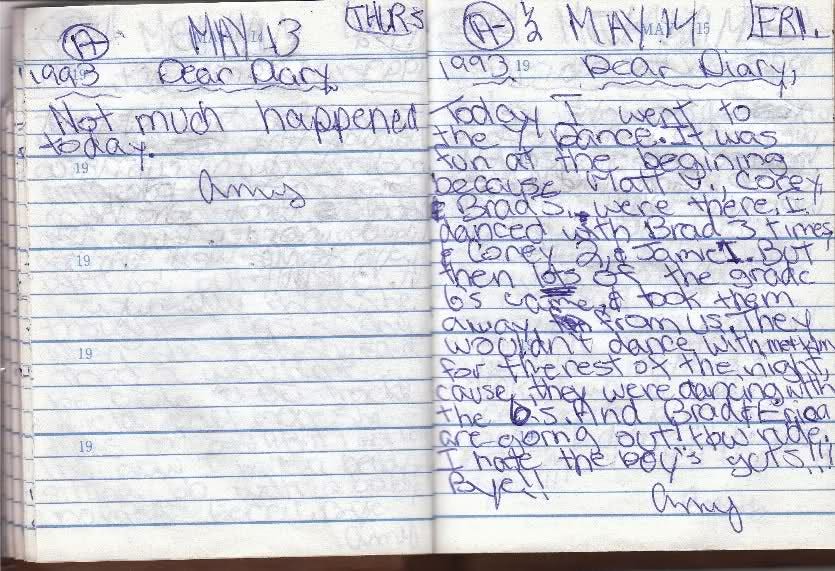 A MAY 13 THURS
1993 Dear Diary,
Not much happened
today.
19
Amy
19
19
19
A 1/2 MAY 14 15 FRI.
1993 19 Dear Diary,
Today I went to
the dance. It was
fun at the begining
because Matt V., Corey,
& Brad S. were there. I
danced with Brad 3 times
& Corey 2, & Jamie 1. But
then lots of the grade
6s came, & took them
away, from us. They
wouldn't dance with me + Kim
for the rest of the night,
cause they were dancing with
the 6s. And Brad & Erica
are going out! How rude.
I hate the boy's guts!!!
Bye!!
Amy